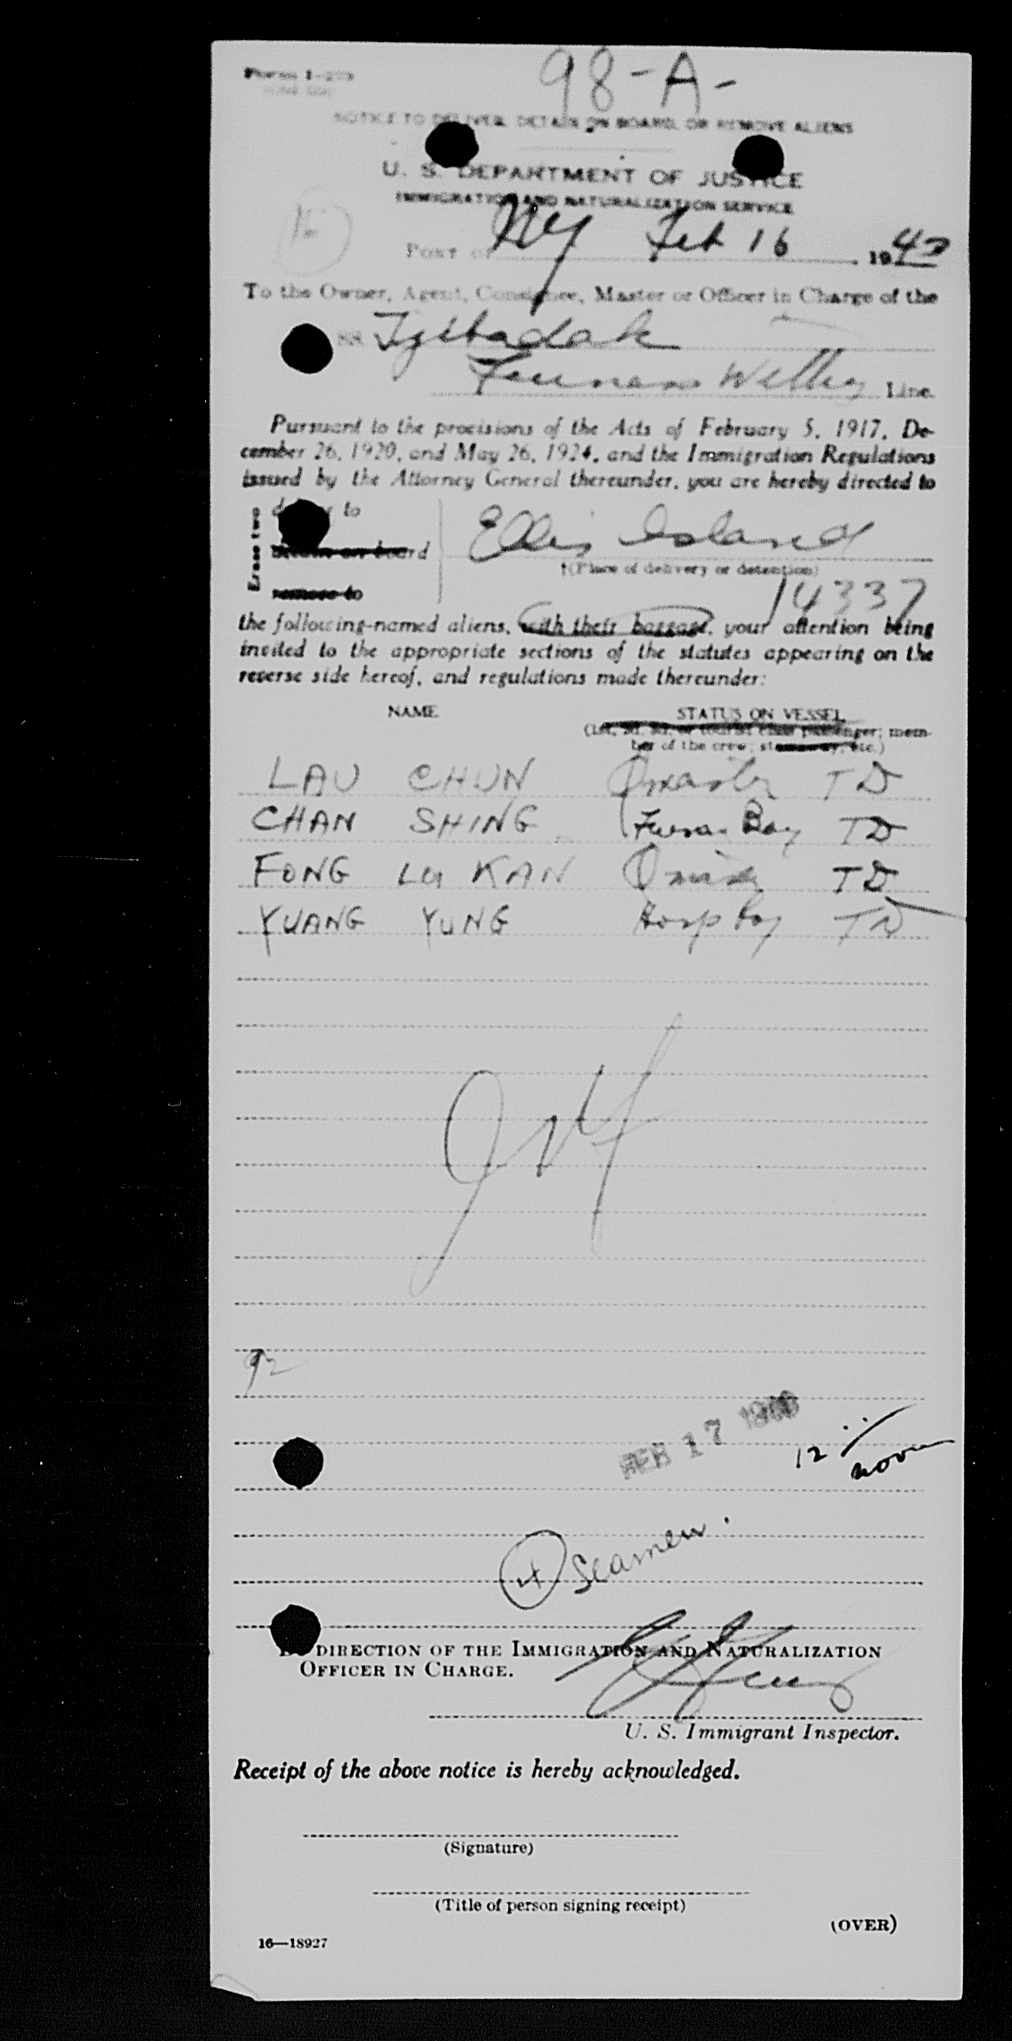 98-A-
Form I-259
NOTICE TO DELIVER, DETAIN ON BOARD, OR REMOVE ALIENS
U. S. DEPARTMENT OF JUSTICE
IMMIGRATION AND NATURALIZATION SERVICE
PORT OF NY Feb 16 1943
To the Owner, Agent, Consignee, Master or Officer in Charge of the
SS. Tjibadak
Furness Withy Line.
Pursuant to the provisions of the Acts of February 5, 1917, De-
cember 26, 1920, and May 26, 1924, and the Immigration Regulations
issued by the Attorney General thereunder, you are hereby directed to
Erase two
deliver to
detain on board
remove to
Ellis Island
†(Place of delivery or detention)
14337
the following-named aliens, with their baggage, your attention being
invited to the appropriate sections of the statutes appearing on the
reverse side hereof, and regulations made thereunder:
NAME STATUS ON VESSEL
(1st, 2d, 3d, or tourist class passenger; mem-
ber of the crew; stowaway, etc.)
LAU CHUN TD
CHAN SHING Boy TD
FONG KAN TD
YUANG YUNG Hosp Boy TD
92
FEB 17
12 noon
4 Seamen.
BY DIRECTION OF THE IMMIGRATION AND NATURALIZATION
OFFICER IN CHARGE.
U. S. Immigrant Inspector.
Receipt of the above notice is hereby acknowledged.
(Signature)
(Title of person signing receipt)
(OVER)
16—18927